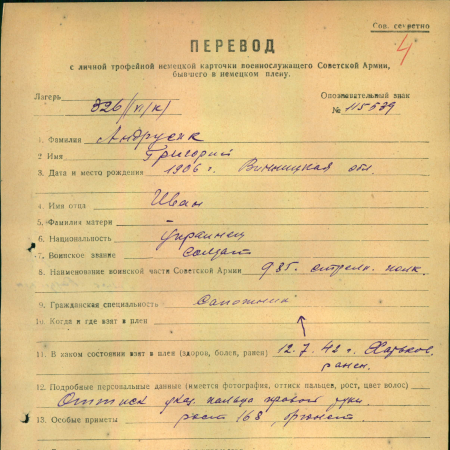 Сов. секретно
4
ПЕРЕВОД
с личной трофейной немецкой карточки военнослужащего Советской Армии,
бывшего в немецком плену.
Лагерь 326/(VI/K)
Опознавательный знак
№ 115539
1. Фамилия Андрусик
2 Имя Григорий
3. Дата и место рождения 1906 г. Винницкая обл.
4. Имя отца Иван
5. Фамилия матери
6. Национальность Украинец
7. Воинское звание Солдат
8. Наименование воинской части Советской Армии 985. стрелк. полк.
9. Гражданская специальность Сапожник
10. Когда и где взят в плен
11. В каком состоянии взят в плен (здоров, болен, ранен) 12.7.42 г. Харьков.
ранен.
12. Подробные персональные данные (имеется фотография, оттиск пальцев, рост, цвет волос)
Оттиск указ. пальца правой руки
13. Особые приметы рост 168,